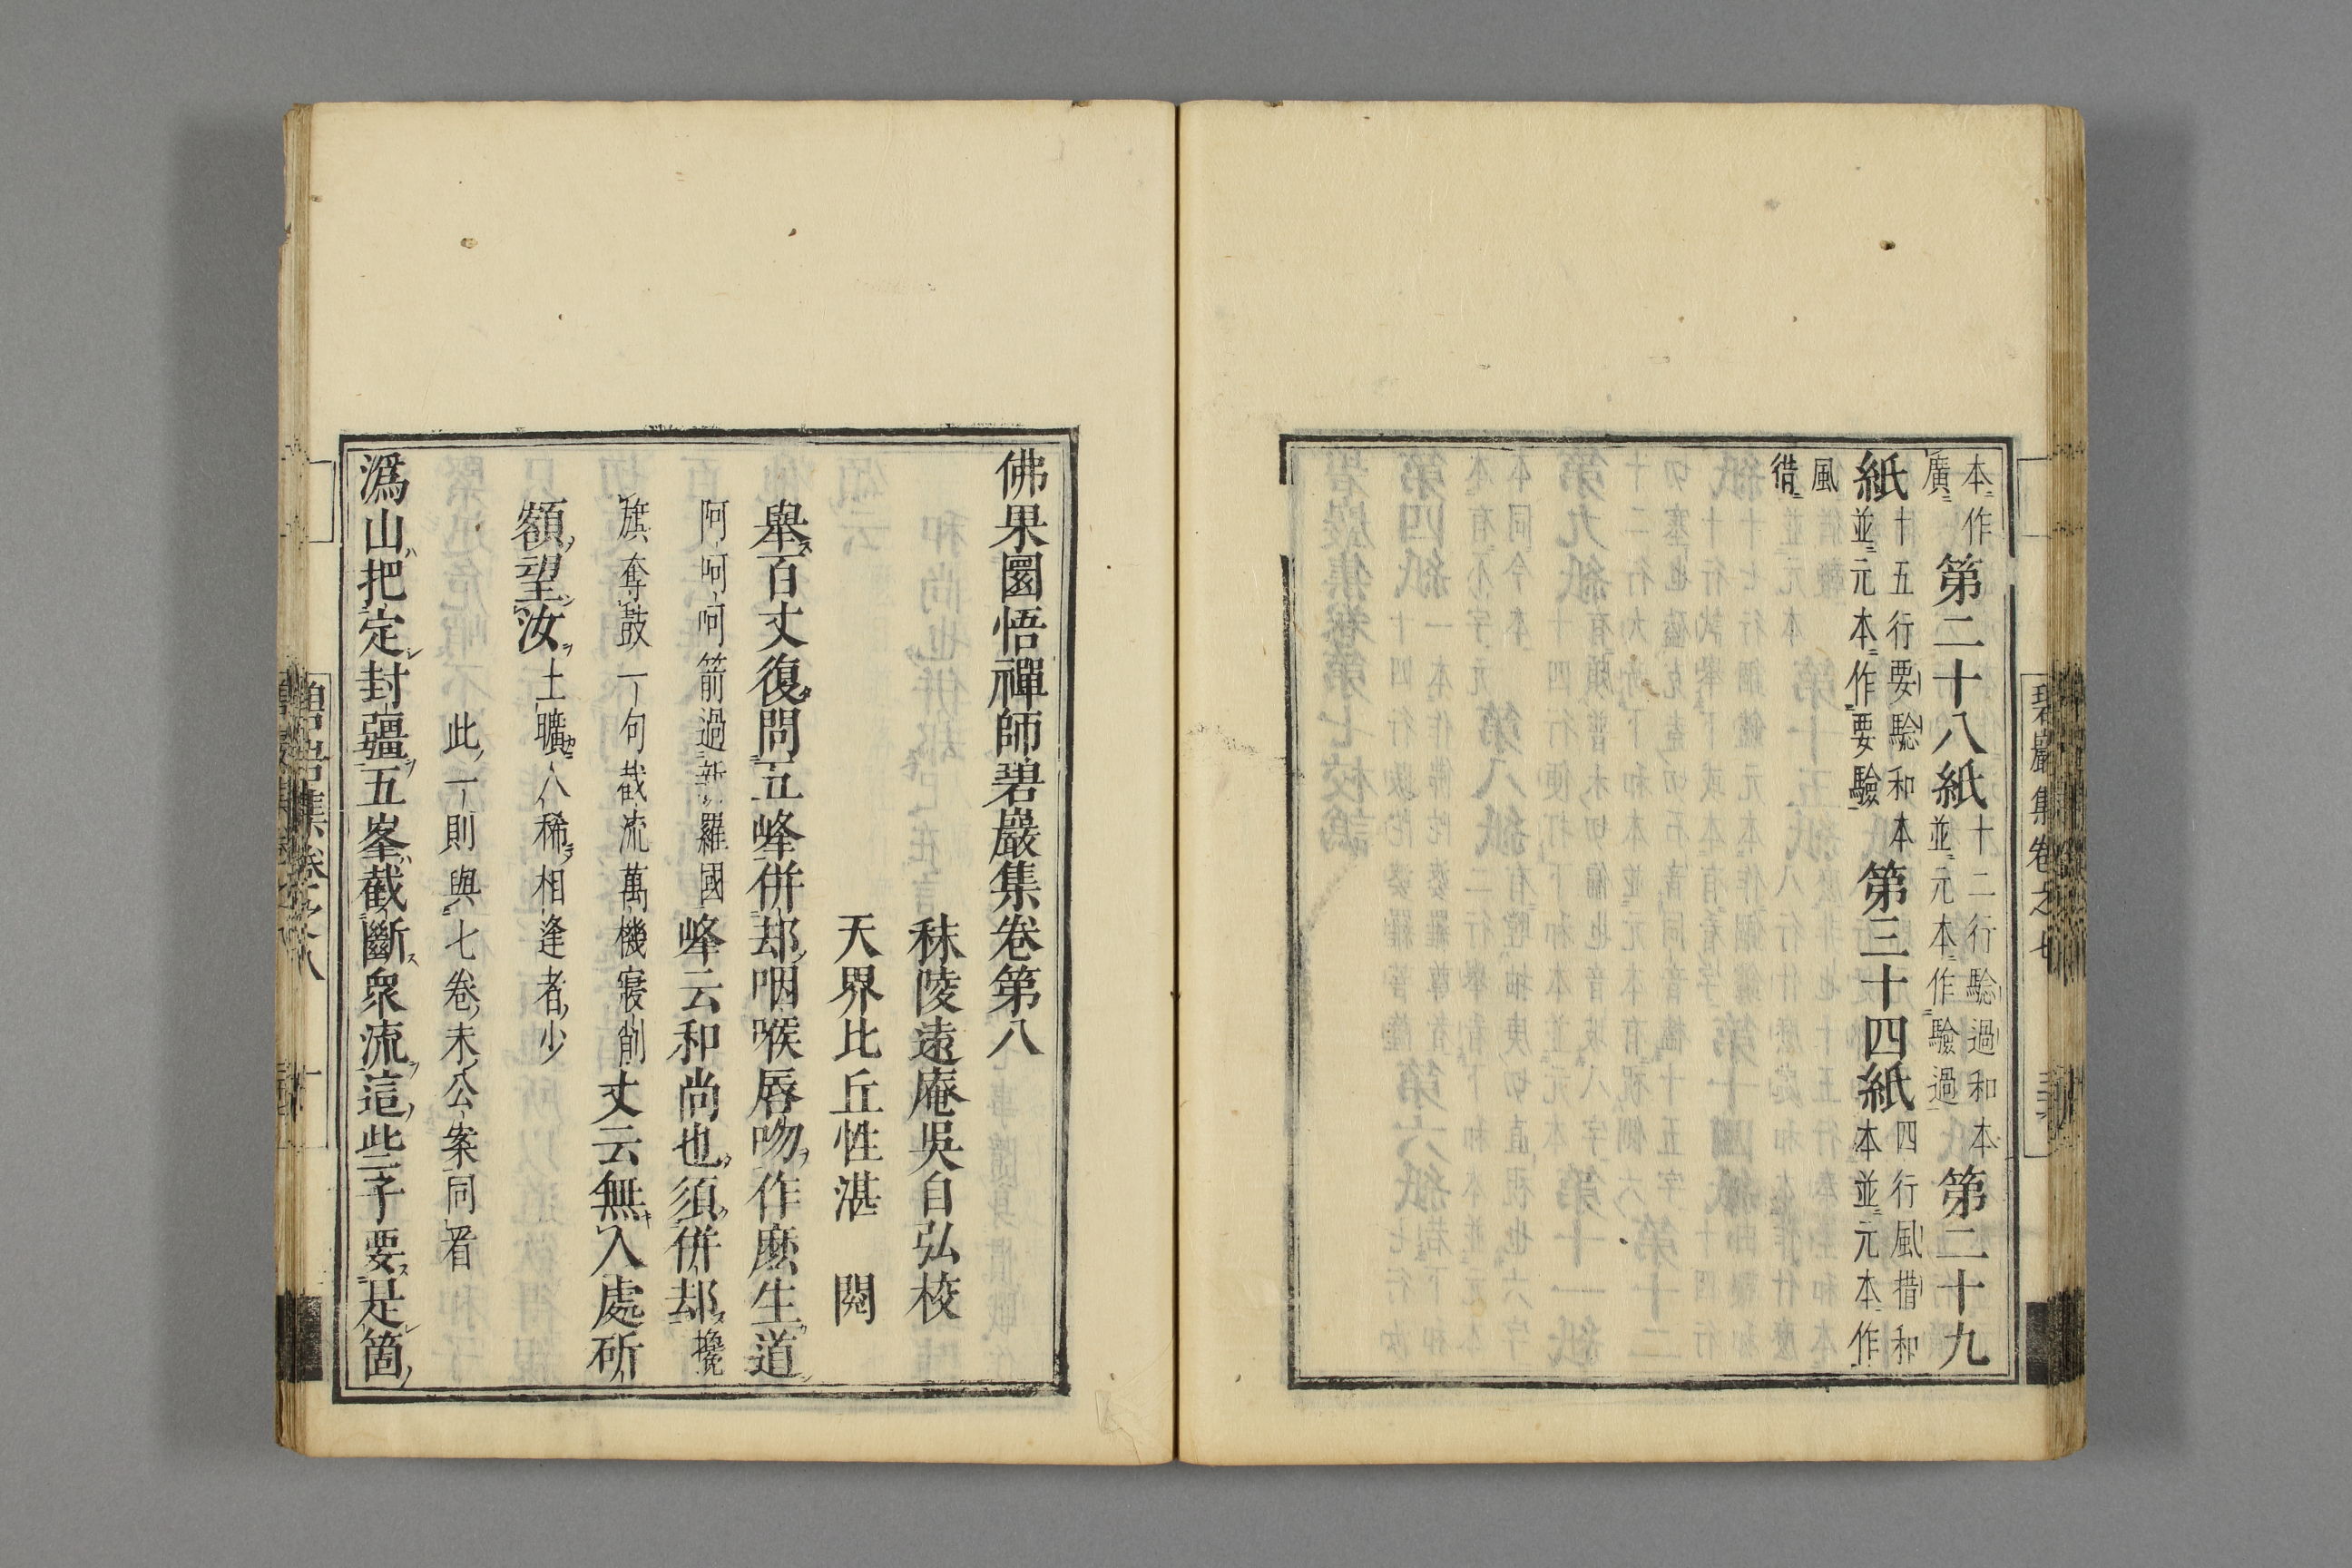 本作
廣
第二十八紙
十二行驗過和本
並元本作驗過
第二十九
紙
十五行要驗和本
並元本作要驗
第三十四紙
四行風措和
本並元本作
風
碧巖集卷之七
佛果圜悟禪師碧巖集卷第八
秣陵遠庵吳自弘校
天界比丘性湛 閱
舉百丈復問五峰併却咽喉唇吻作麽生道
阿呵呵箭過新羅國
峰云和尚也須併却
攙
旗奪鼓一句截流萬機寢削
丈云無人處斫
額望汝
土曠人稀相逢者少
此一則與七卷末公案同看
潙山把定封疆五峯截斷衆流這些子要是箇